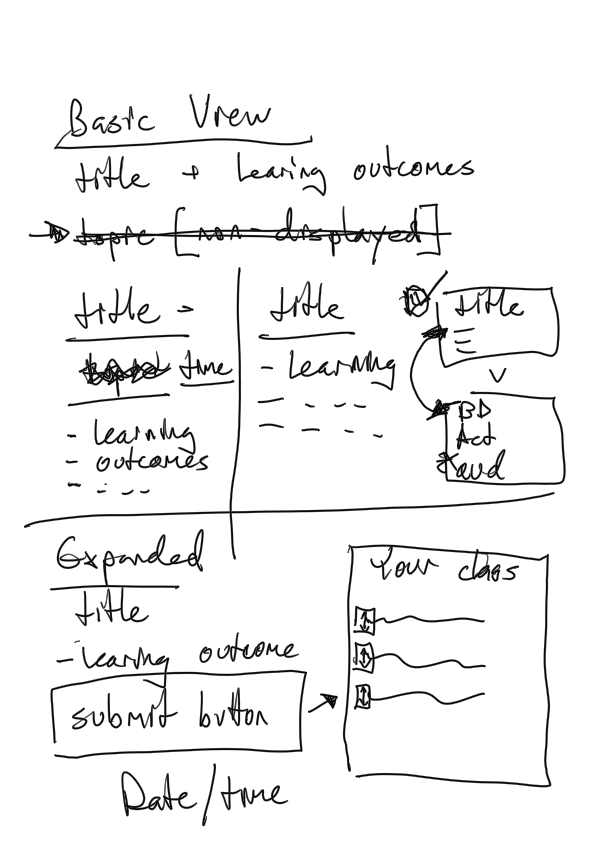 Basic View
title + learing outcomes
topic [non-displayed]
title -
time
- learning
- outcomes
title
- Learning
title
V
BD
Act
aud
Expanded
title
- learning outcome
submit button
Date/time
Your class